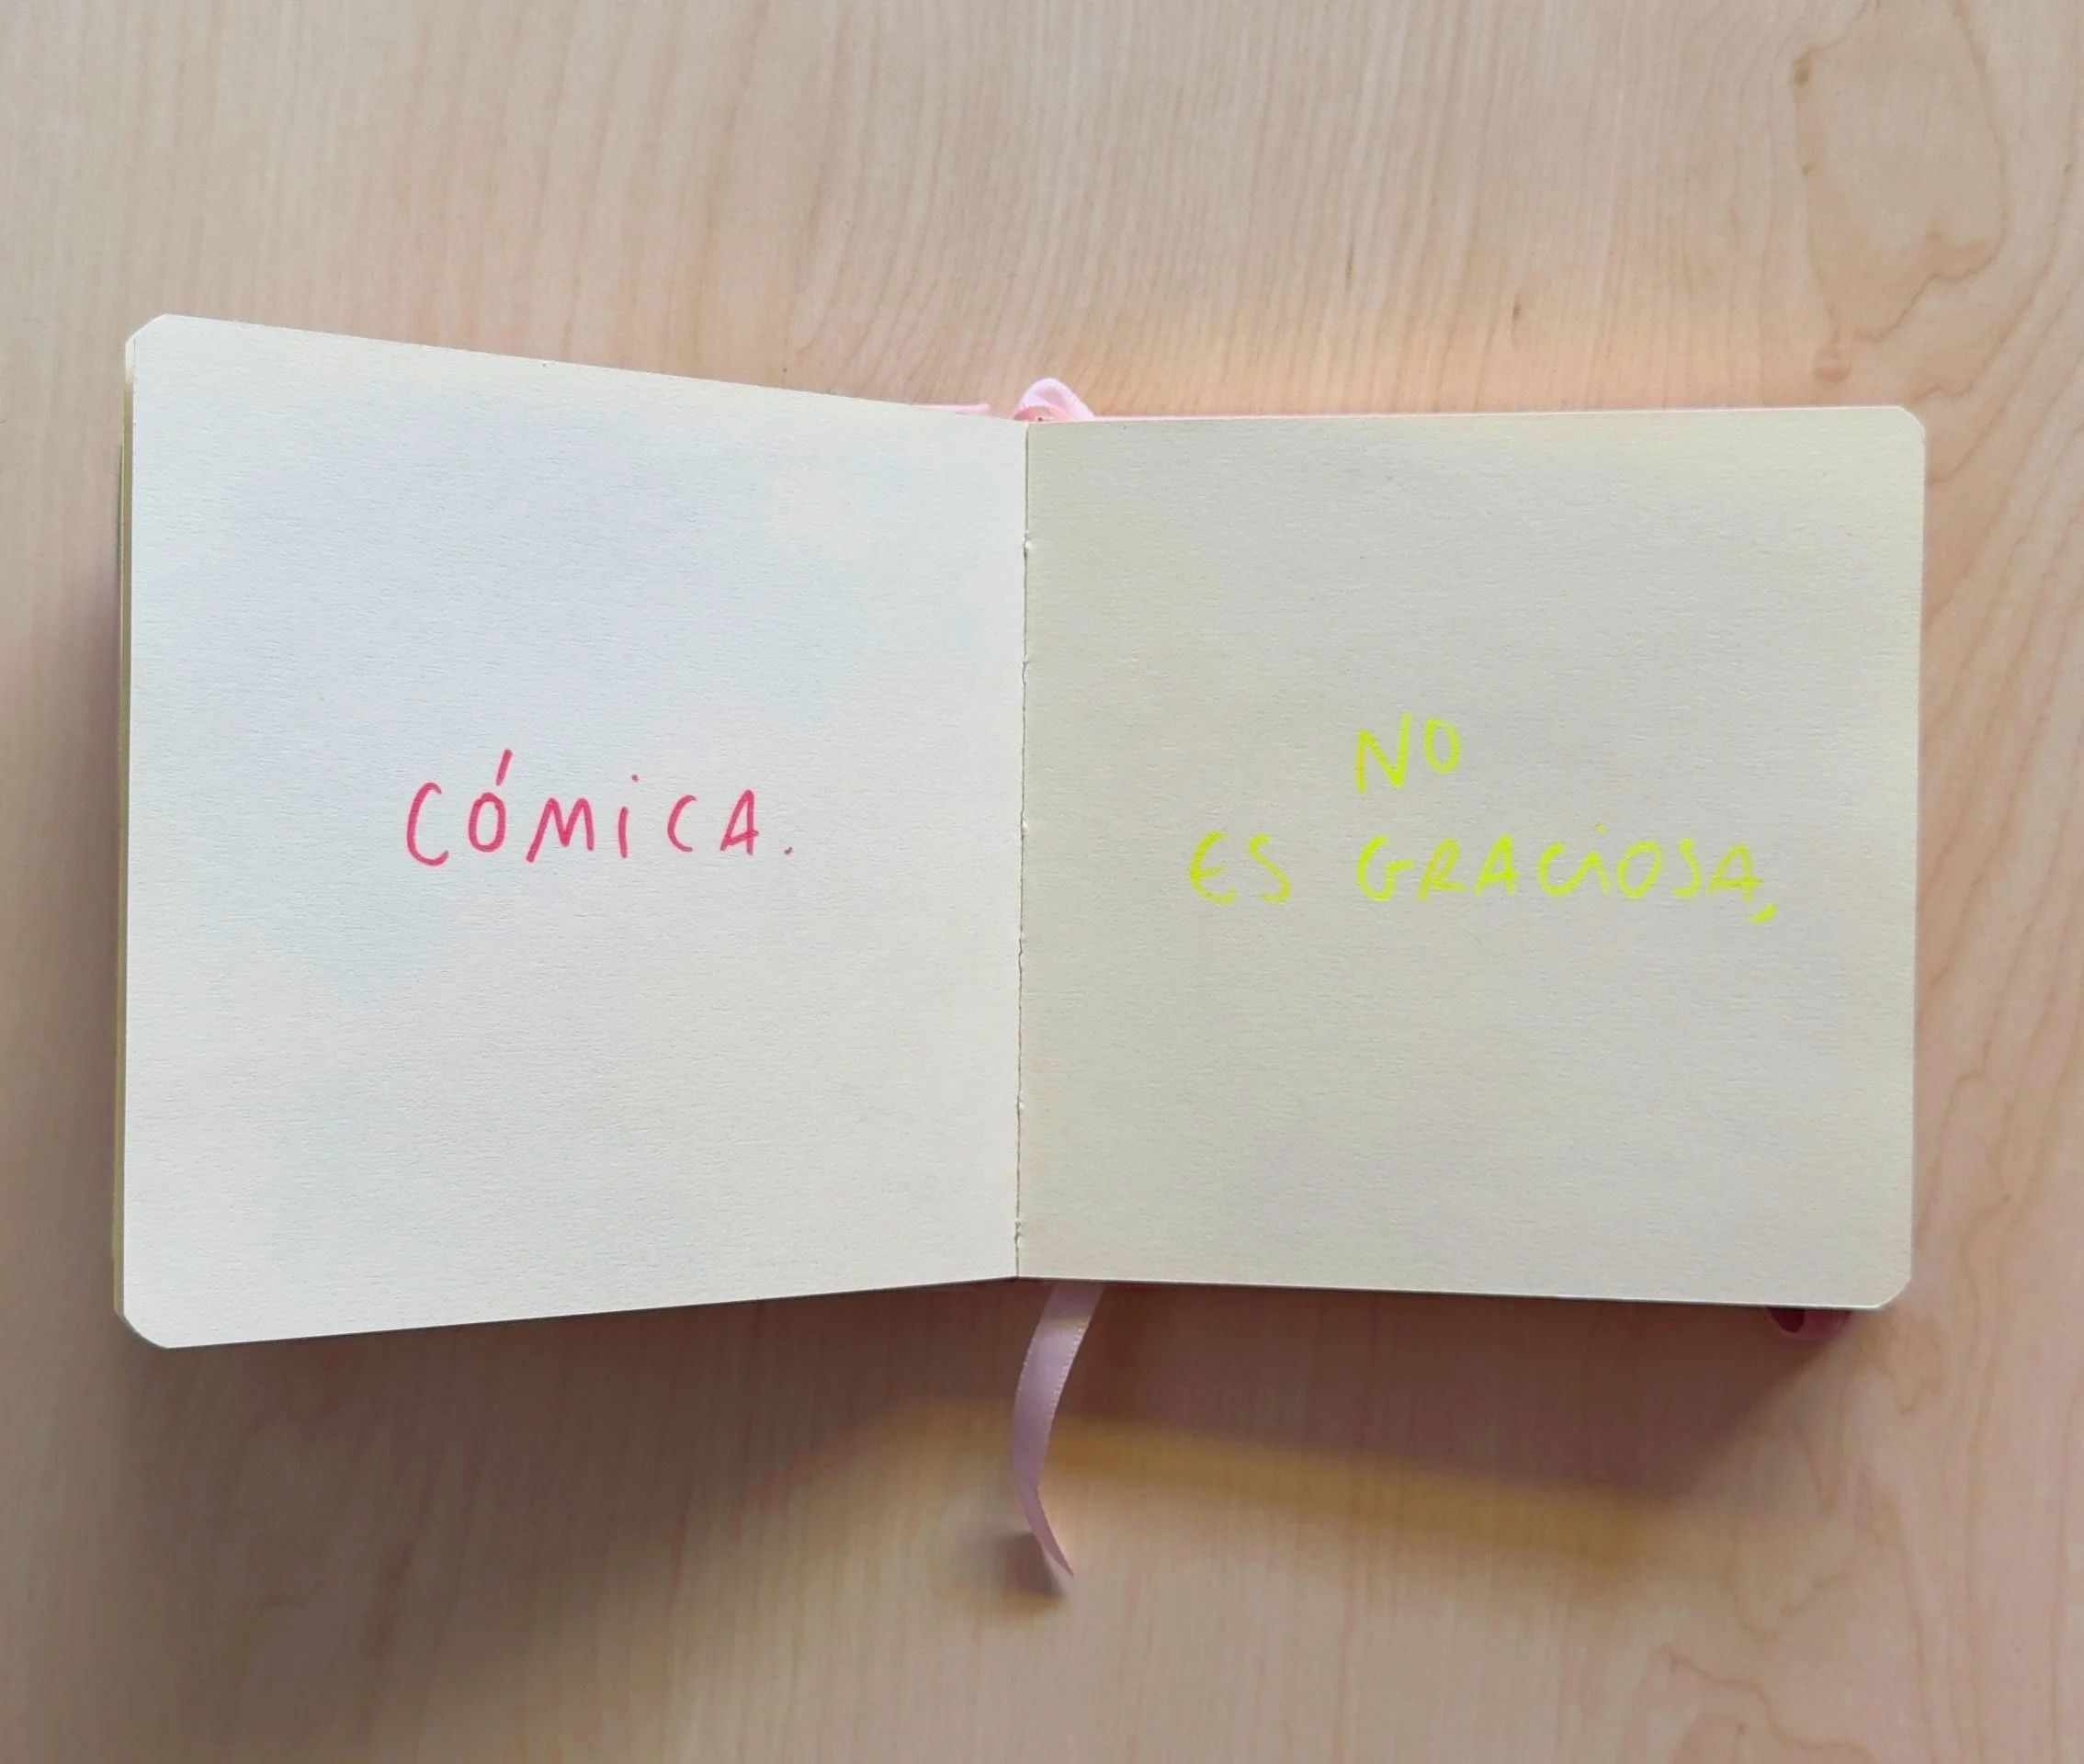 CÓMiCA.
NO
ES GRACiOSA,